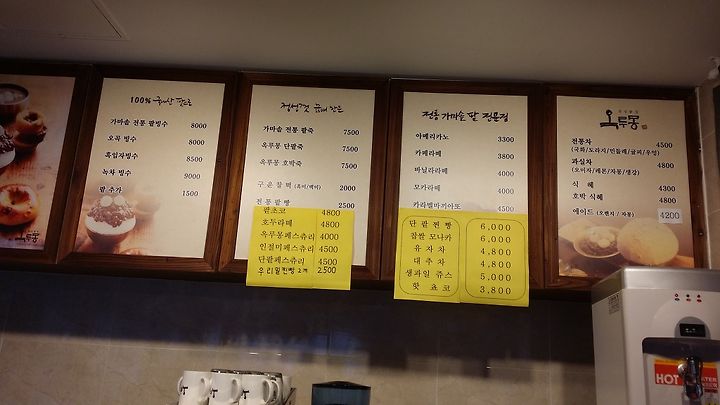 100% 국내산 팥으로
가마솥 전통 팥빙수 8000
오곡 빙수 8000
흑임자빙수 8500
녹차 빙수 9000
팥 추가 1500
옥루몽
정성껏
가마솥 전통 팥죽 7500
옥루몽 단팥죽 7500
옥루몽 호박죽 7500
구운찰떡 (흑미/백미) 2000
전통 팥빵 2500
팥초코 4800
호두라떼 4800
옥루몽페스츄리 4000
인절미페스츄리 4500
단팥페스츄리 4500
우리밀찐빵 2개 2500
전통 가마솥 팥 전문점
아메리카노 3300
카페라떼 3800
바닐라라떼 4500
모카라떼 4000
카라멜마끼아또 4500
단팥찐빵 6,000
찹쌀 모나카 6,000
유자차 4,800
대추차 4,800
생과일 쥬스 5,000
핫 쵸코 3,800
옥루몽
전통차 4500
(국화/도라지/민들레/귤피/우엉)
과실차 4800
(오미자/레몬/자몽/생강)
식혜 4300
호박 식혜 4800
에이드 (오렌지/자몽) 4200
HOT WATER